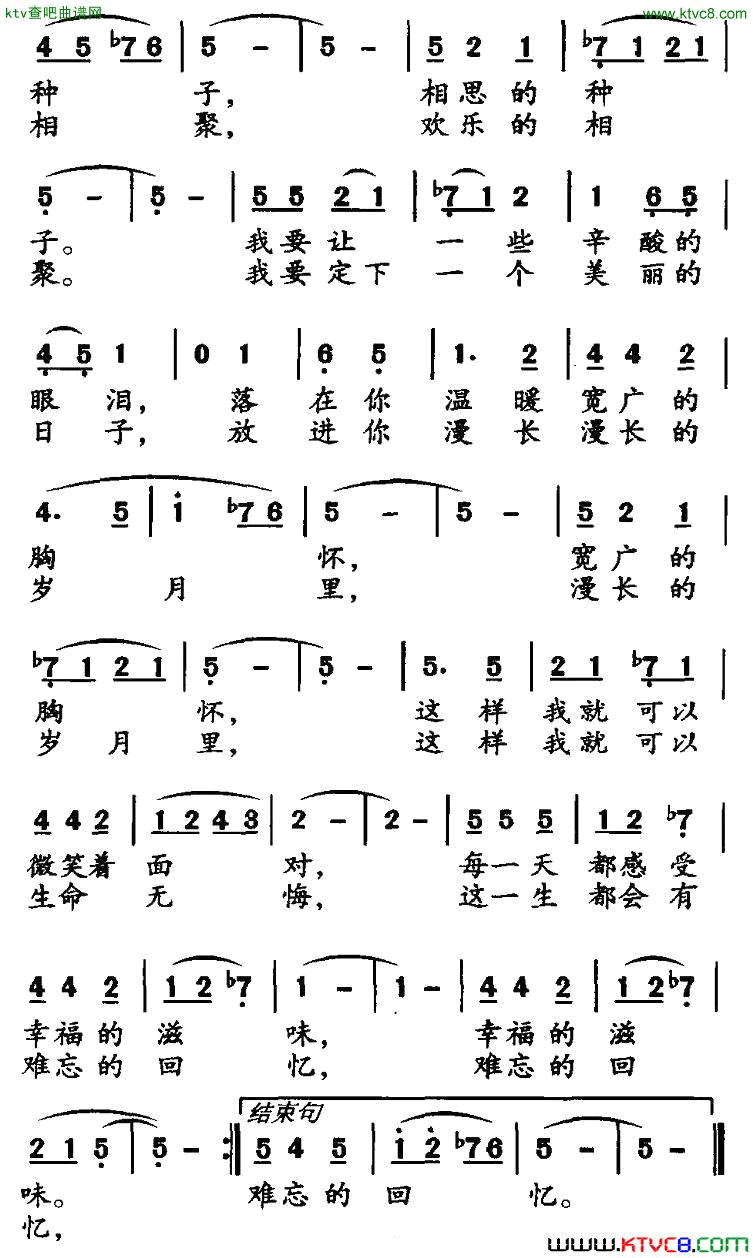 ktv查吧曲谱网 www.ktvc8.com
4 5 ♭7 6 | 5 - | 5 - | 5 2 1 | ♭7 1 2 1 |
种 子， 相思的 种
相 聚， 欢乐的 相
5 - | 5 - | 5 5 2 1 | ♭7 1 2 | 1 6 5 |
子。 我要让 一些 辛酸的
聚。 我要定下 一个 美丽的
4 5 1 | 0 1 | 6 5 | 1. 2 | 4 4 2 |
眼泪， 落 在你 温暖 宽广的
日子， 放 进你 漫长 漫长的
4. 5 | i ♭7 6 | 5 - | 5 - | 5 2 1 |
胸 怀， 宽广的
岁 月 里， 漫长的
♭7 1 2 1 | 5 - | 5 - | 5. 5 | 2 1 ♭7 1 |
胸 怀， 这样 我就可以
岁月 里， 这样 我就可以
4 4 2 | 1 2 4 3 | 2 - | 2 - | 5 5 5 | 1 2 ♭7 |
微笑着 面 对， 每一天 都感受
生命 无 悔， 这一生 都会有
4 4 2 | 1 2 ♭7 | 1 - | 1 - | 4 4 2 | 1 2 ♭7 |
幸福的 滋 味， 幸福的 滋
难忘的 回 忆， 难忘的 回
结束句
2 1 5 | 5 - :‖ 5 4 5 | i 2 ♭7 6 | 5 - | 5 - ‖
味。 难忘的 回 忆。
忆，
www.KTVC8.COM